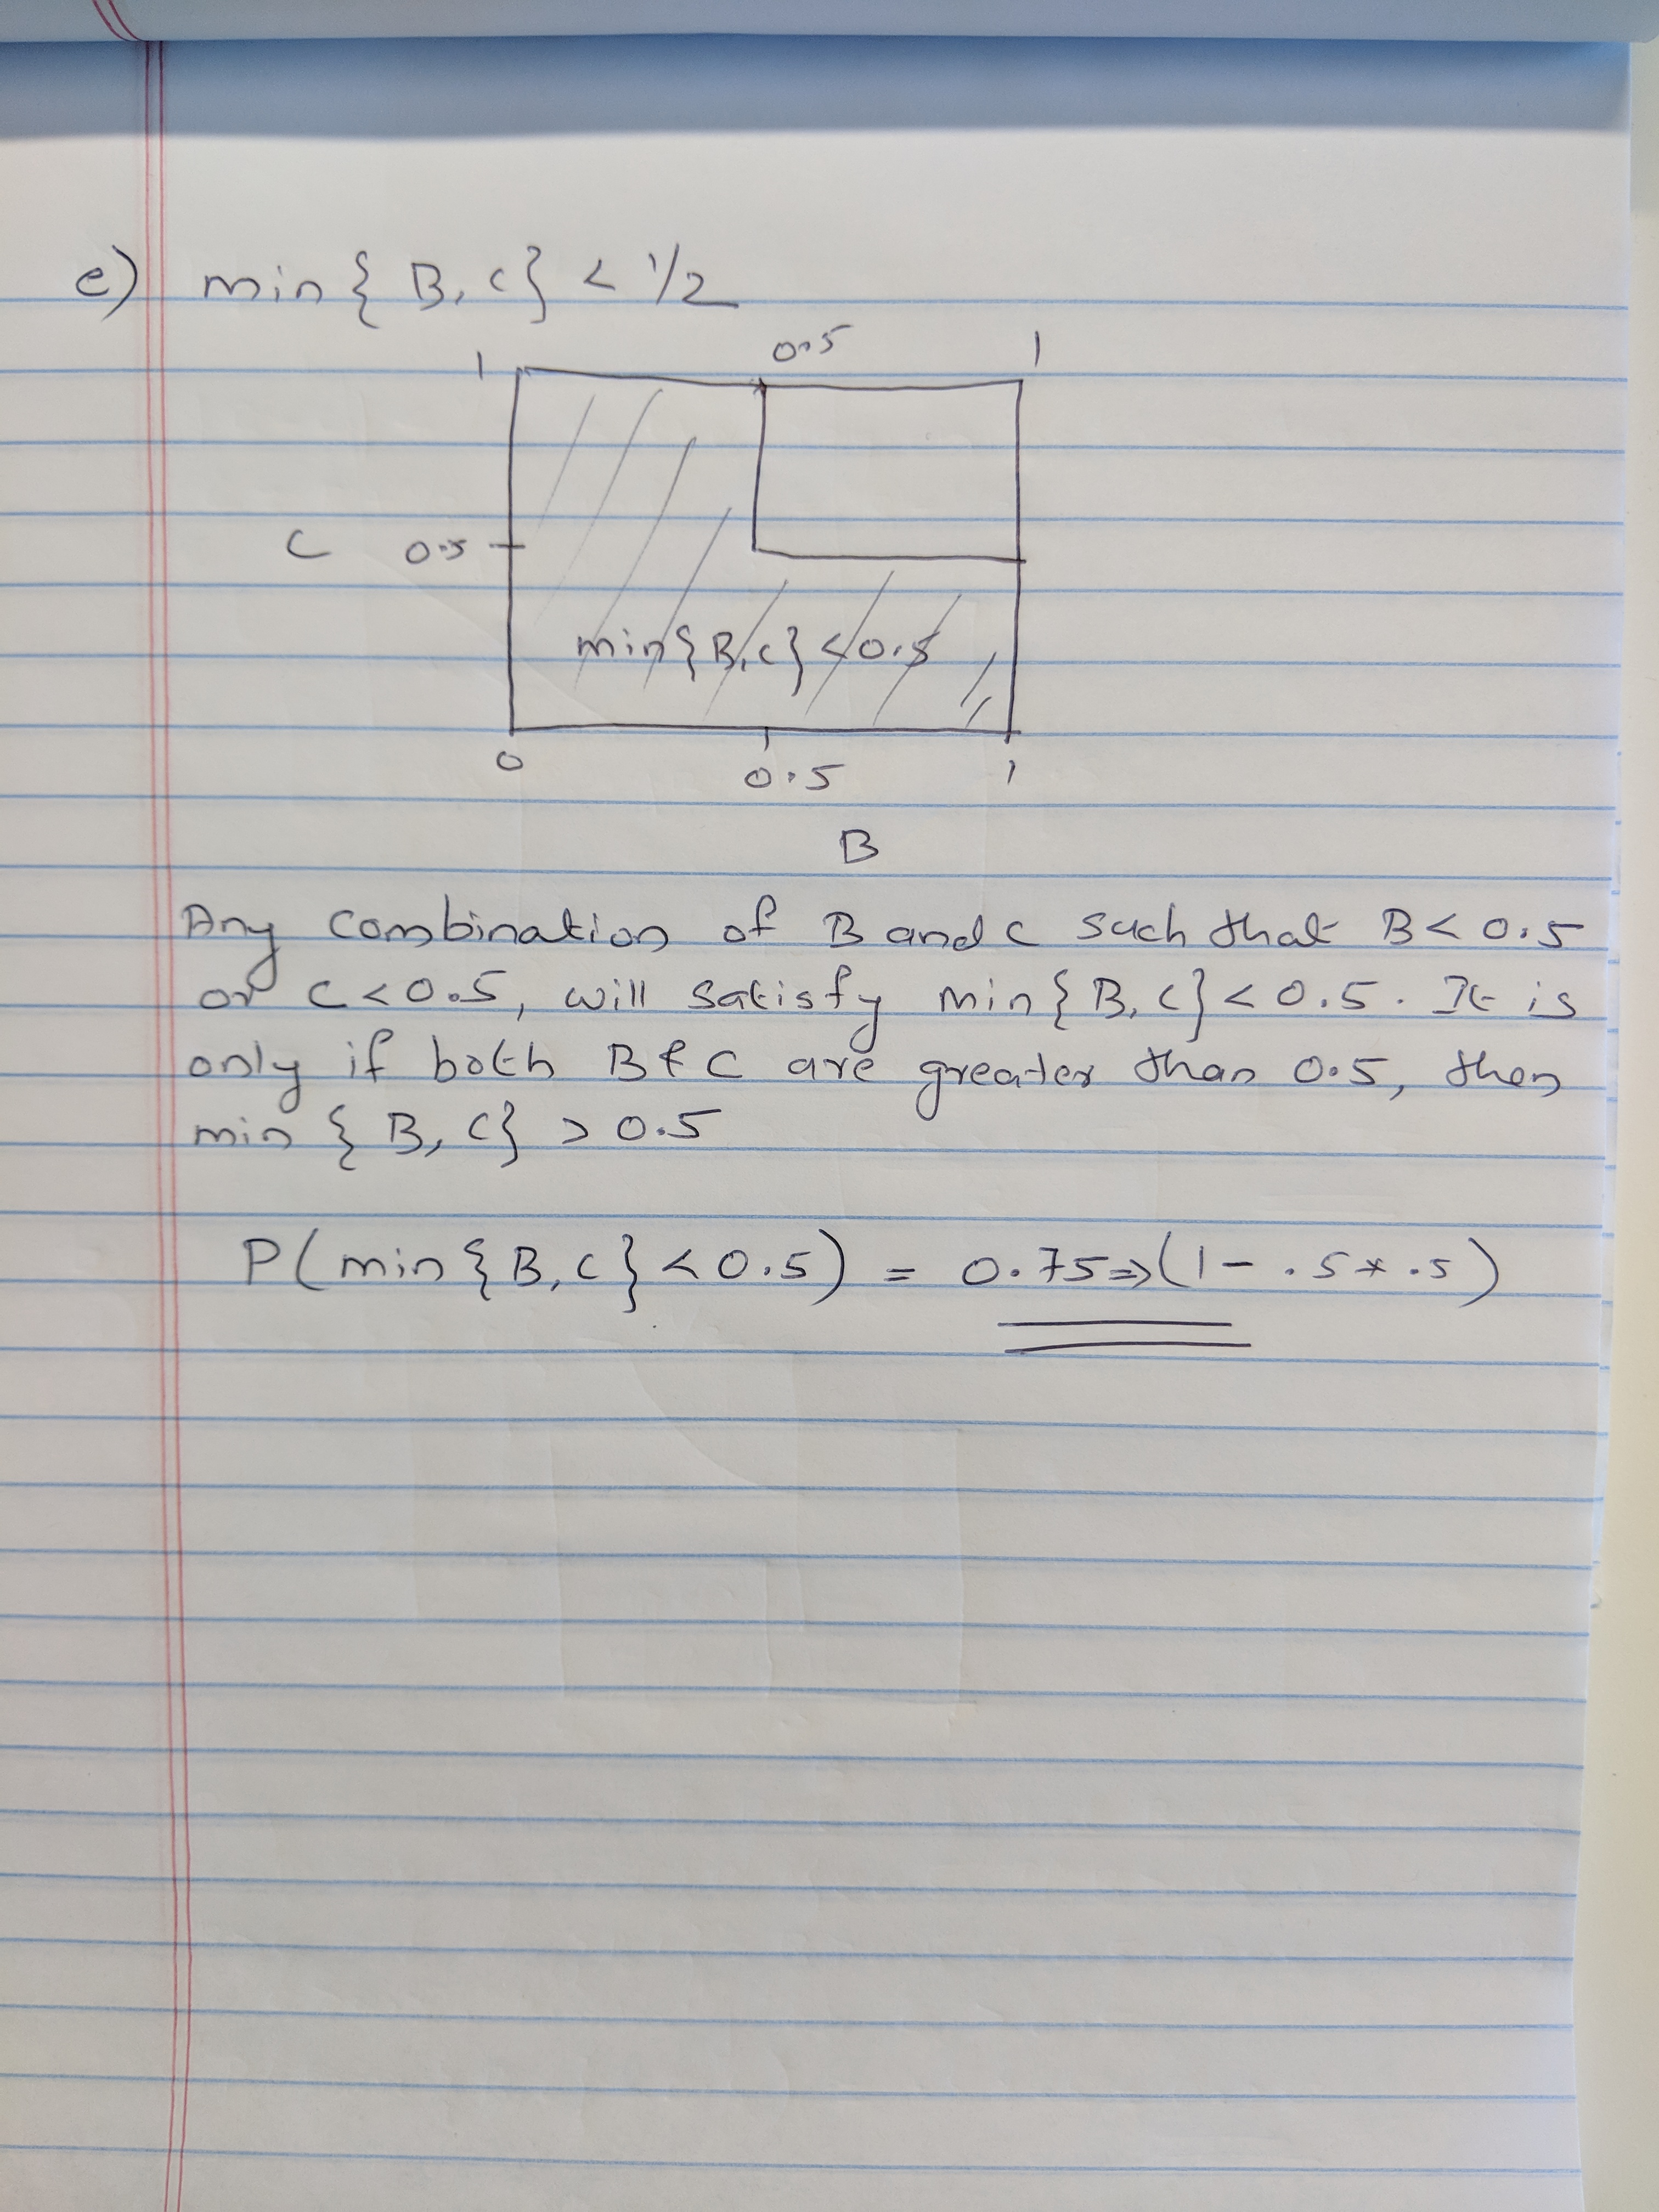 e) min{ B, C} < 1/2
1 0.5 1
C 0.5
min{B,C} <0.5
0 0.5 1
B
Any combination of B and C such that B< 0.5
or C<0.5, will satisfy min{B,C}<0.5. It is
only if both B & C are greater than 0.5, then
min { B, C} > 0.5
P(min{B,C}<0.5) = 0.75⇒(1- .5* .5)